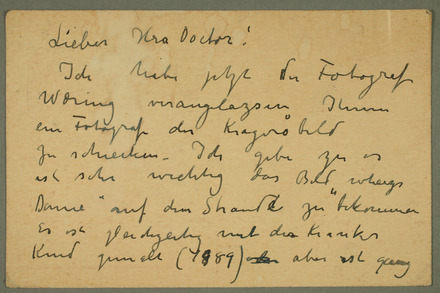 Lieber Hra Doctor!
Ich habe jetzt den Fotograf
Wæring veranglazsen Ihnen
ein Fotograf der Kragerøbild
zu schicken – Ich gebe zu es
ist sehr wichtig das Bild
Dame" auf dem Strande zu bekommen
Es ist gleichzeitig mit die Kranke
Kind gemalt (1889) aber ist ganz